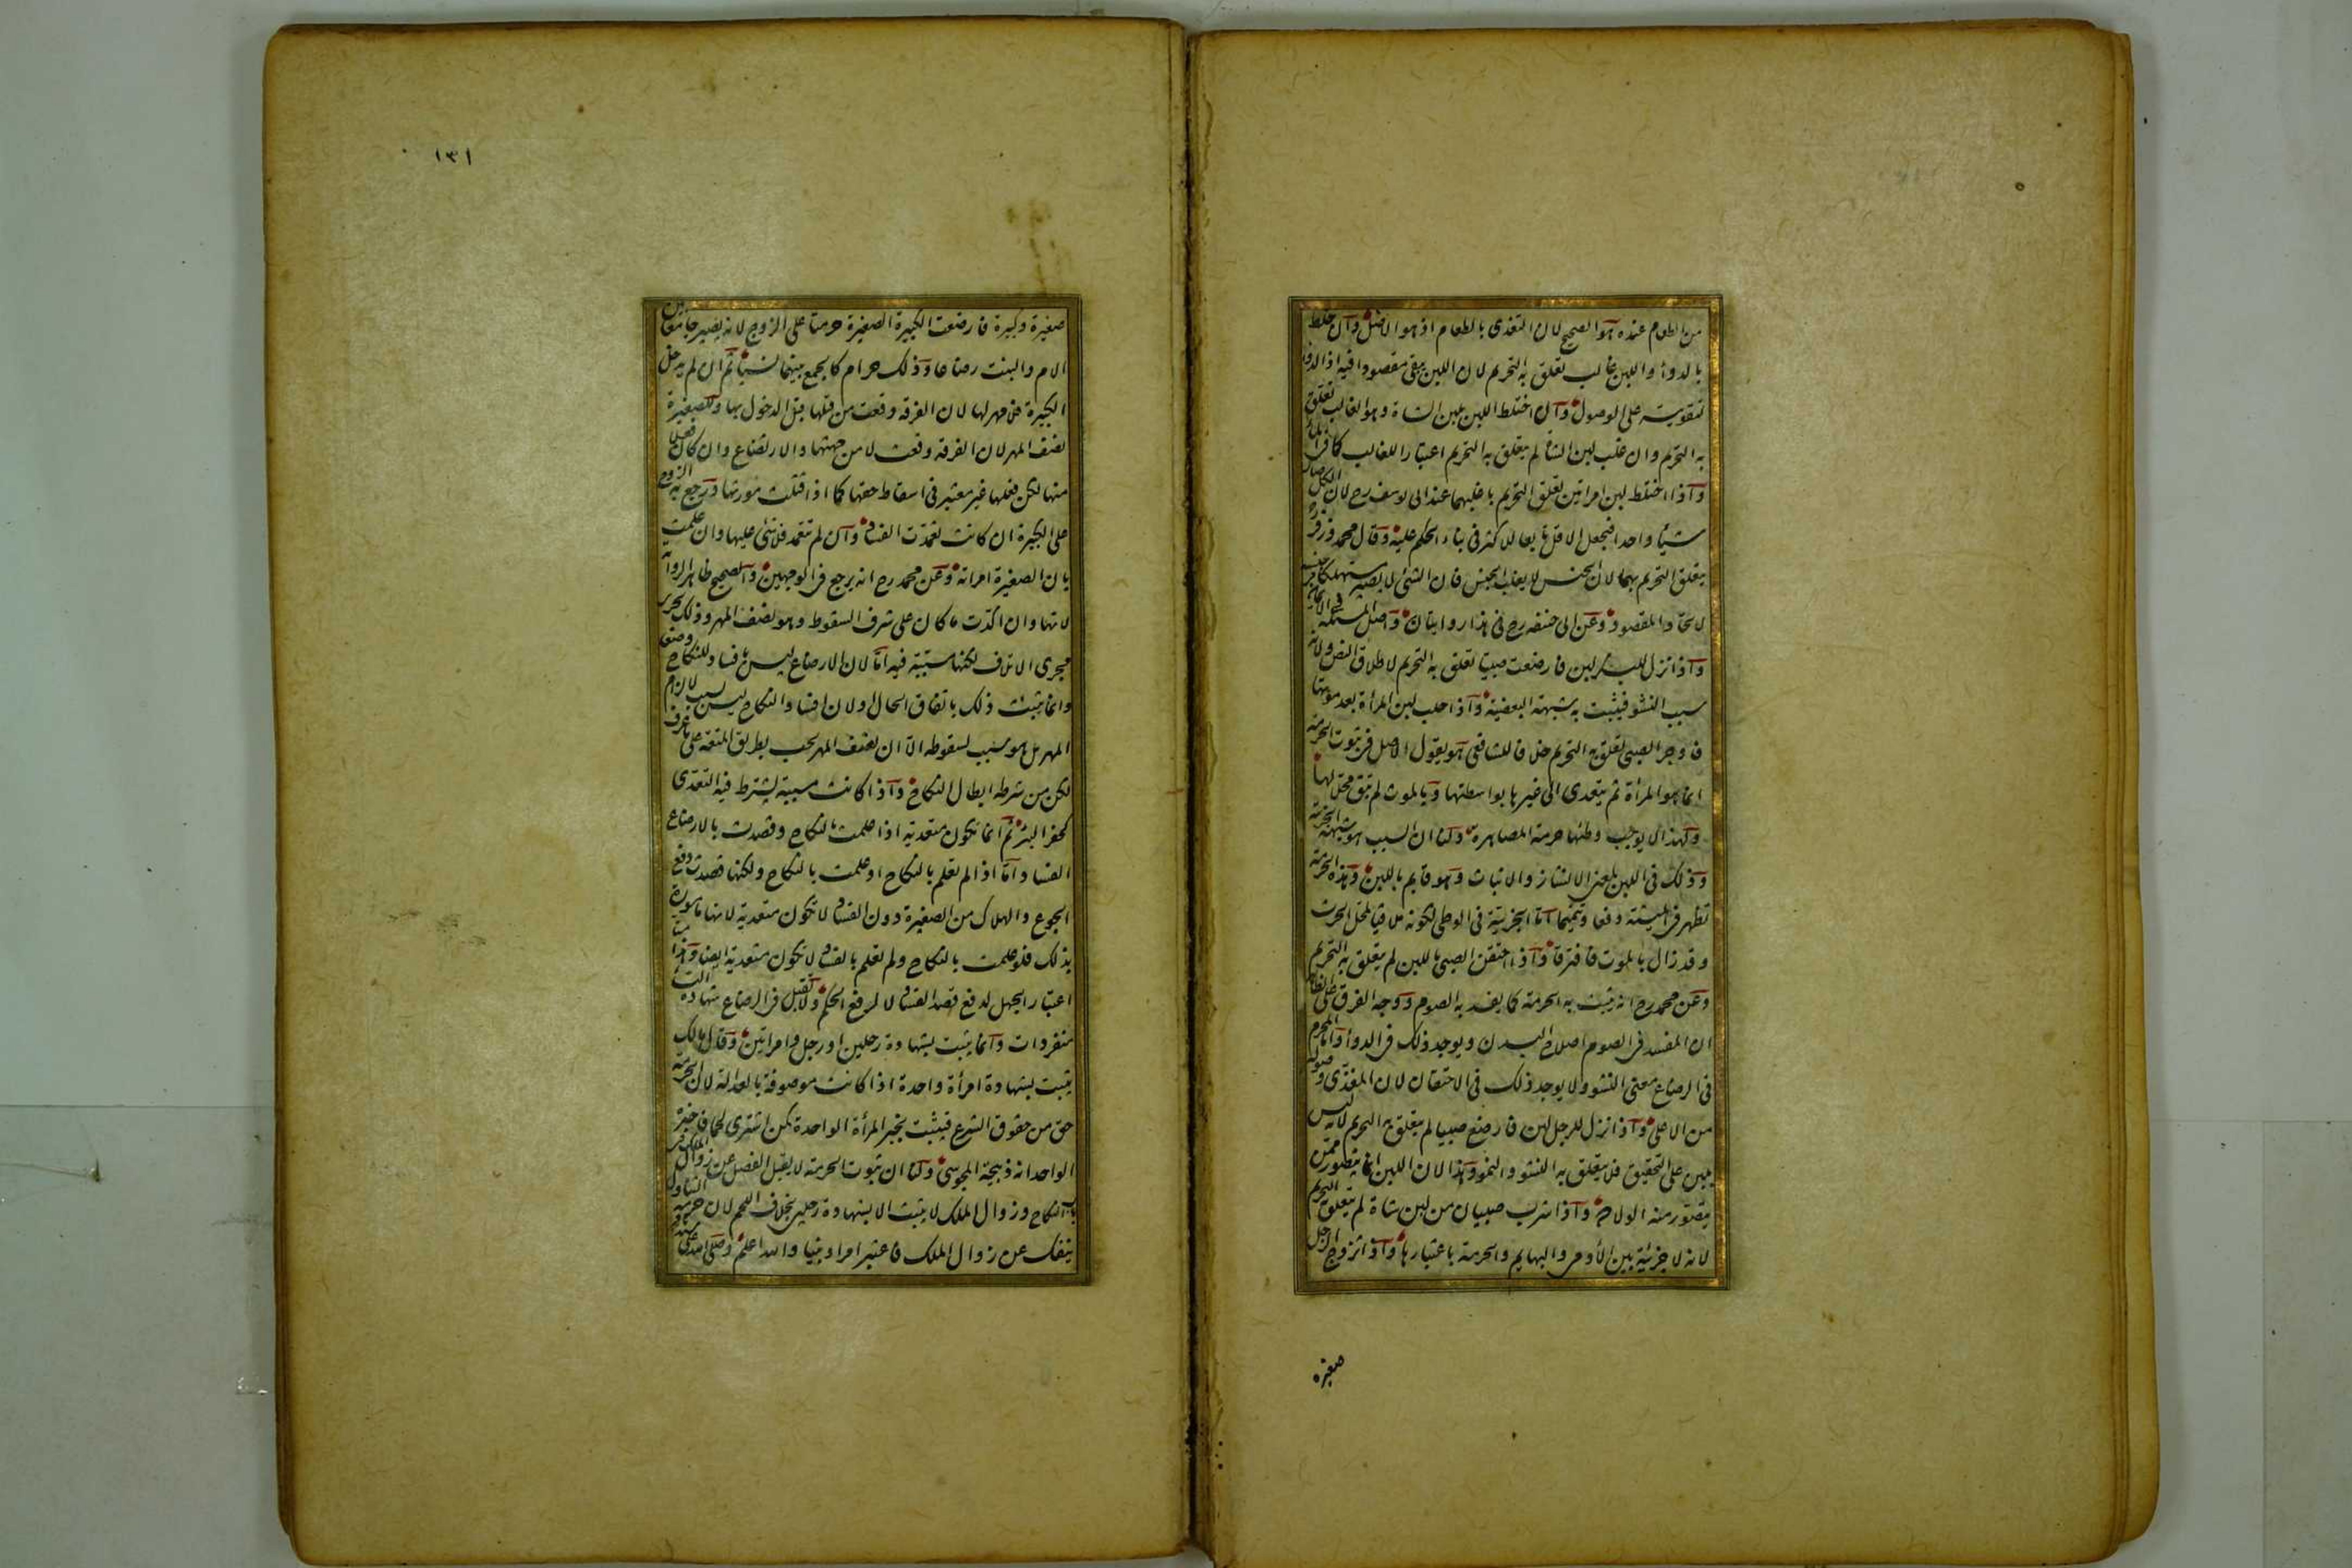 من الطعام عنده هو الصحيح لان التغذى بالطعام اذ هو الاصل وان خلط
بالدواء واللبن غالب تعلق به التحريم لان اللبن يبقى مقصودا فيه اذ الدواء
لتقويته على الوصول وان اختلط اللبن بلبن الشاة وهو الغالب تعلق
به التحريم وان غلب لبن الشاة لم يتعلق به التحريم اعتبارا للغالب كما فى الماء
واذا اختلط لبن امراتين تعلق التحريم باغلبهما عند ابى يوسف رح لان الكل صار
شيئا واحدا فيجعل الاقل تابعا للاكثر فى بناء الحكم عليه وقال محمد وزفر ره
يتعلق التحريم بهما لان الجنس لا يغلب الجنس فان الشئ لا يصير مستهلكا فى جنسه
لاتحاد المقصود وعن ابى حنيفه رح فى هذا روايتان واصل المسئلة فى الايمان
واذا نزل للبكر لبن فارضعت صبيا تعلق به التحريم لاطلاق النص ولانه
سبب النشو فيثبت به شبهة البعضية واذا حلب لبن المرأة بعد موتها
فاوجر الصبى تعلق به التحريم خلافا للشافعى هو يقول الاصل فى ثبوت الحرمة
انما هو المرأة ثم يتعدى الى غيرها بواسطتها وبالموت لم تبق محلا لها
ولهذا لا يوجب وطئها حرمة المصاهرة ولنا ان السبب هو شبهة الجزئية
وذلك فى اللبن لمعنى الانشاز والانبات وهو قايم باللبن وهذه الحرمة
تظهر فى الميتة دفعا وتيمما اما الجزئية فى الوطى لكونه ملاقيا لمحل الحرث
وقد زال بالموت فافترقا واذا احتقن الصبى باللبن لم يتعلق به التحريم
وعن محمد رح انه يثبت به الحرمة كما يفسد به الصوم ووجه الفرق على الظاهر
ان المفسد فى الصوم اصلاح البدن ويوجد ذلك فى الدواء واما المحرم
فى الرضاع معنى النشو ولا يوجد ذلك فى الاحتقان لان المغذى وصوله
من الاعلى واذا نزل للرجل لبن فارضع صبيا لم يتعلق به التحريم لانه ليس
بلبن على التحقيق فلا يتعلق به النشو والنمو وهذا لان اللبن انما يتصور ممن
يتصور منه الولادة واذا شرب صبيان من لبن شاة لم يتعلق به التحريم
لانه لا جزئية بين الآدمى والبهايم والحرمة باعتبارها واذا تزوج الرجل
صغيرة
١٣١
صغيرة وكبيرة فارضعت الكبيرة الصغيرة حرمتا على الزوج لانه يصير جامعا بين
الام والبنت رضاعا وذلك حرام كالجمع بينهما نسبا ثم ان لم يدخل
الكبيرة فلا مهر لها لان الفرقة وقعت من قبلها قبل الدخول بها وللصغيرة
نصف المهر لان الفرقة وقعت لا من جهتها والارتضاع وان كان فعلا
منها لكن فعلها غير معتبر فى اسقاط حقها كما اذا قتلت مورثها ورجع به الزوج
على الكبيرة ان كانت تعمدت الفساد وان لم تتعمد فلا شئ عليها وان علمت
بان الصغيرة امراته وعن محمد رح انه يرجع فى الوجهين والصحيح ظاهر الرواية
لانها وان اكدت ما كان على شرف السقوط وهو نصف المهر وذلك يجرى
مجرى الاتلاف لكنها مسببة فيه اما لان الارضاع ليس بافساد للنكاح وضعا
وانما يثبت ذلك باتفاق الحال اولان افساد النكاح ليس بسبب لالزام
المهر بل هو سبب لسقوطه الا ان نصف المهر يجب بطريق المتعة على ما عرف
لكن من شرطه ابطال النكاح واذا كانت مسببة يشترط فيه التعدى
كحفر البئر ثم انما تكون متعدية اذا علمت بالنكاح وقصدت بالارضاع
الفساد اما اذا لم تعلم بالنكاح او علمت بالنكاح ولكنها قصدت دفع
الجوع والهلاك من الصغيرة دون الفساد لا تكون متعدية لانها مامورة
بذلك فلو علمت بالنكاح ولم تعلم بالفساد لا تكون متعدية ايضا وهذا منا
اعتبار الجهل لدفع قصد الفساد لا لدفع الحكم ولا تقبل فى الرضاع شهادة النساء
منفردات وانما يثبت بشهادة رجلين او رجل وامراتين وقال مالك
يثبت بشهادة امرأة واحدة اذا كانت موصوفة بالعدالة لان الحرمة
حق من حقوق الشرع فيثبت بخبر المرأة الواحدة كمن اشترى لحما فاخبره
الواحد انه ذبيحة المجوسى ولنا ان ثبوت الحرمة لا يقبل الفصل عن زوال الملك فى
باب النكاح وزوال الملك لا يثبت الا بشهادة رجلين بخلاف اللحم لان حرمة التناول
ينفك عن زوال الملك فاعتبر امرا دينيا والله اعلم وصلى الله على